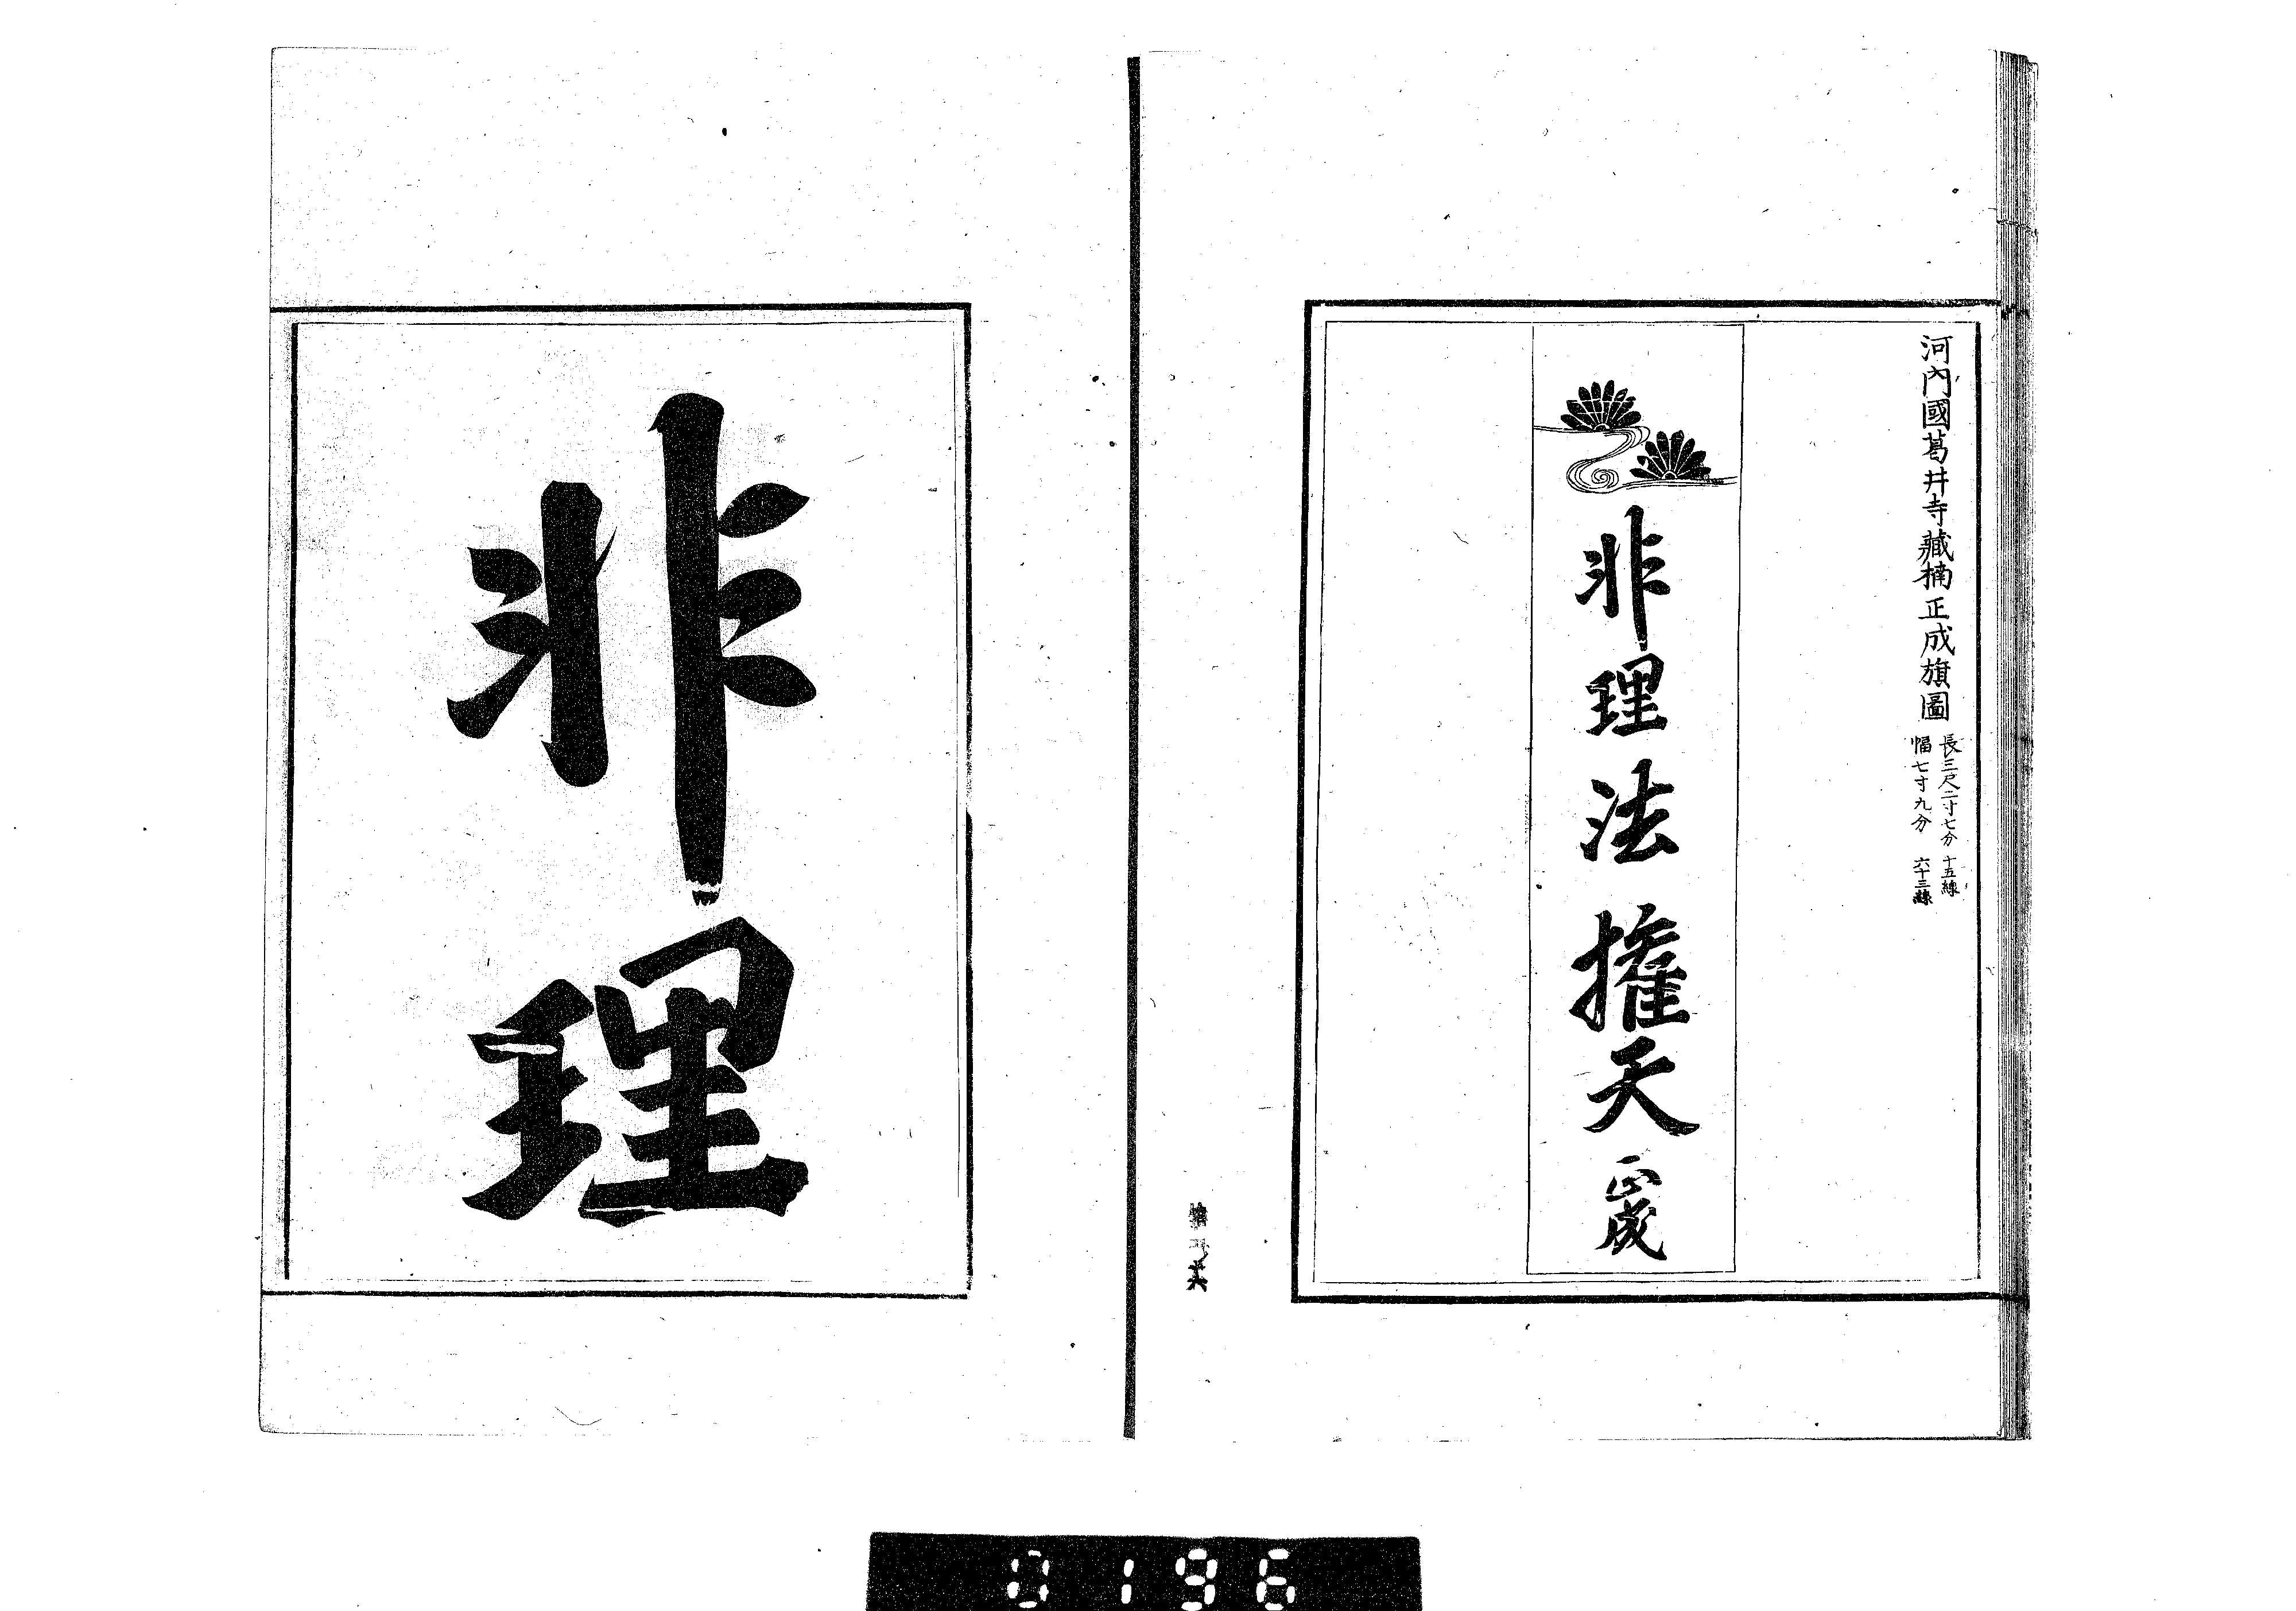 河內國葛井寺藏楠正成旗圖
長三尺二寸七分 十五線
幅七寸九分 六十三線
非理法擁天
正成
非理
0196